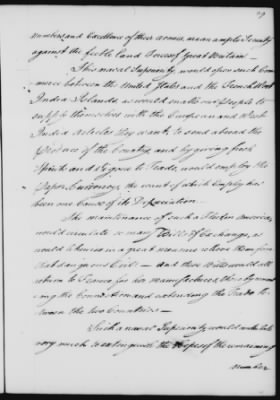 numbers and Excellence of their armies, mean ample Security
against the feeble Land Forces of Great Britain —
This naval Superiority would open such Com
merce between the United States and the French West
India Islands as would enable our People to
supply themselves with the European and West
India Articles they want, to send abroad the
Produce of the Country, and by giving fresh
Spirit and Vigour to Trade, would employ the
Paper Currency, the want of which Employ has
been one Cause of its Depreciation.
The maintenance of such a Fleet in America
would circulate so many Bills of Exchange, as
would likewise in a great measure relieve them from
that dangerous Evil — and these Bills would all
return to France for her manufactures, thus cement
ing the Connection and extending the Trade be
tween the two Countries —
Such a naval Superiority would contribute
very much to extinguish the Hopes of the remaining
number